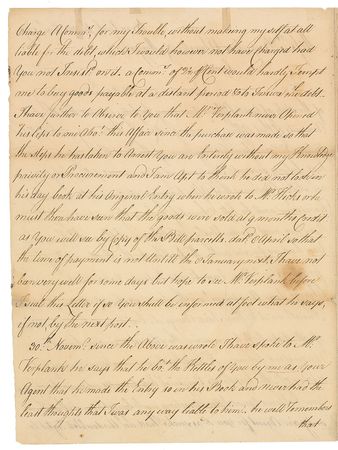 Charge A Commn. for my Trouble, without making myself at all
liable for the debt, which I would however not have charged had
You not Insisted on it. a Commn. of 2½ ⅌ Cent would hardly tempt
me to buy goods payable at a distant period & to Insure the debt.
I have further to Observe to You that Mr. Verplank never Opened
his Lips to me Abot. this Affair since the purchase was made so that
the Steps he has taken to Arrest You are Entirely without my Knowledge
privity or Procurement and I am Apt to think he did not look in
his day book at his Original Entry when he wrote to Mr. Hicks who
must then have seen that the goods were sold at 9 months Credit
as You will see by Copy of the Bill parcells datd. April so that
the time of payment is not Until the January next. I have not
been very well for some days but hope to see Mr. Verplank before
I seal this Letter if so You shall be informed at foot what he says,
if not by the next post.
30th. Novemr. since the Above was wrote I have spoke to Mr.
Verplank he says that he the of You by me as Your
Agent that he made the Entry so in his Book and never had the
least thoughts that I was any way liable to him. he well remembers
that